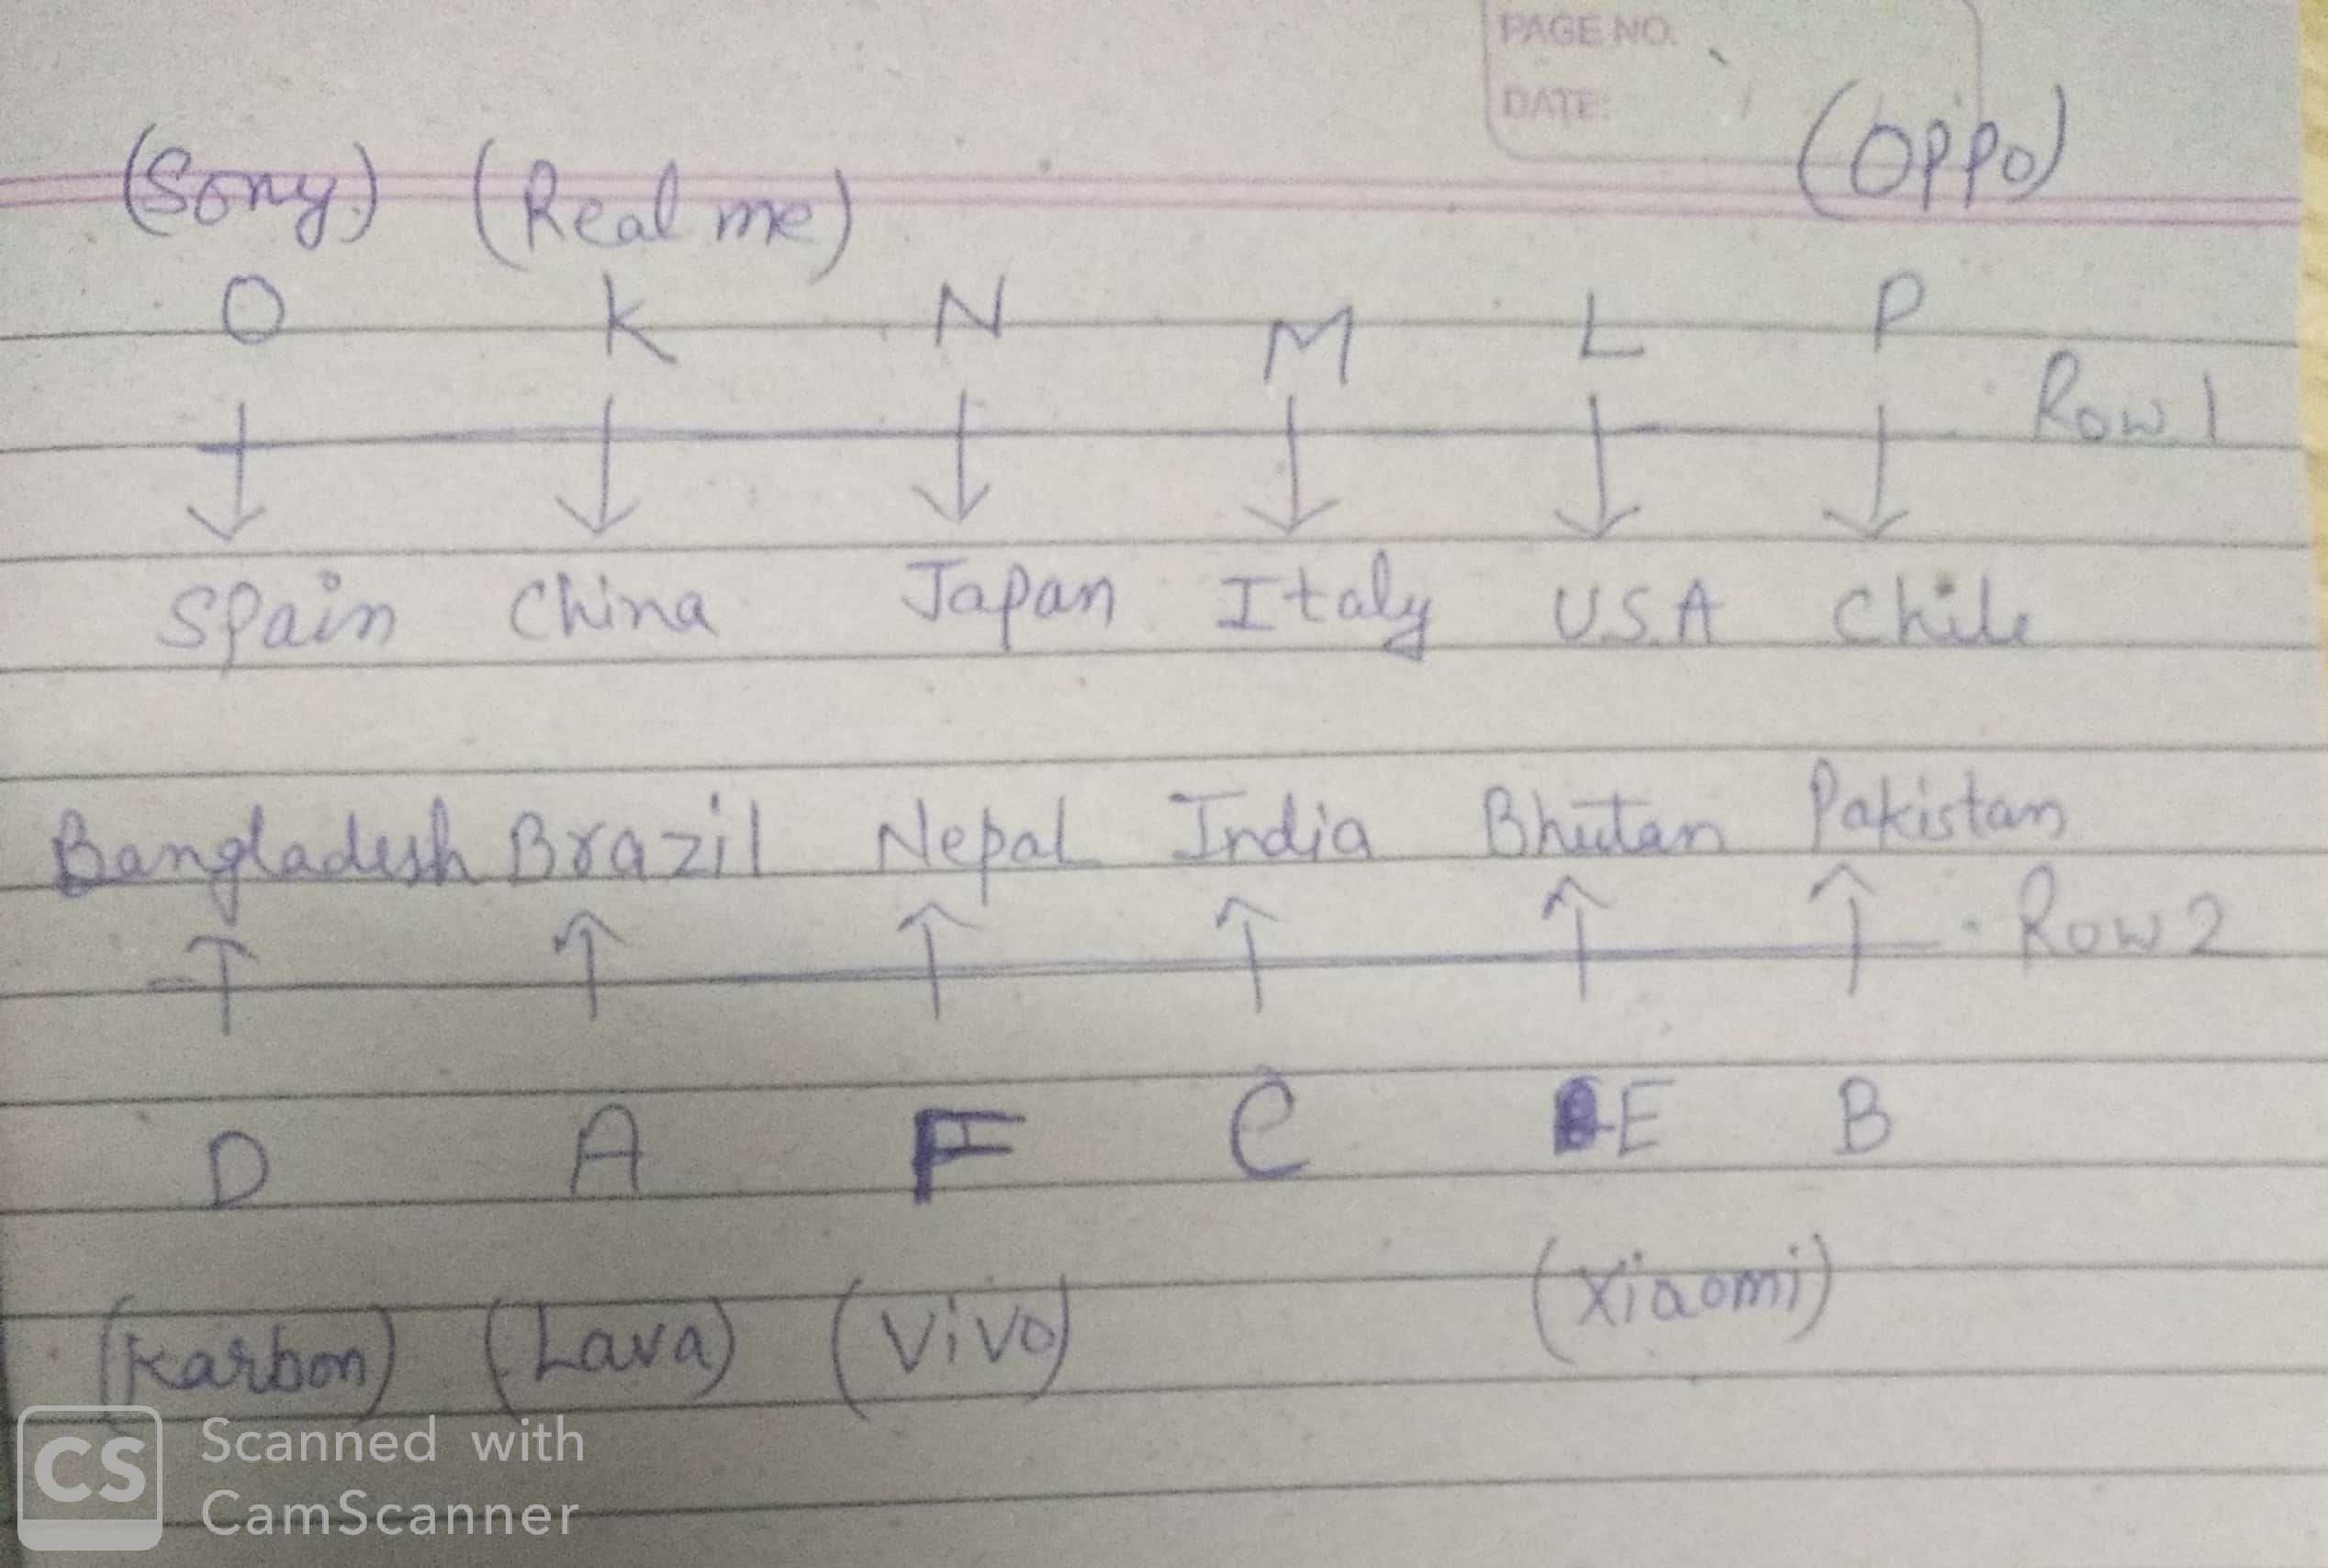 PAGE NO.
DATE:
(Sony) (Real me) (Oppo)
O K N M L P
Row 1
Spain China Japan Italy U.S.A Chile
Bangladesh Brazil Nepal India Bhutan Pakistan
Row 2
D A F C E B
(Karbon) (Lava) (Vivo) (Xiaomi)
CS Scanned with
CamScanner